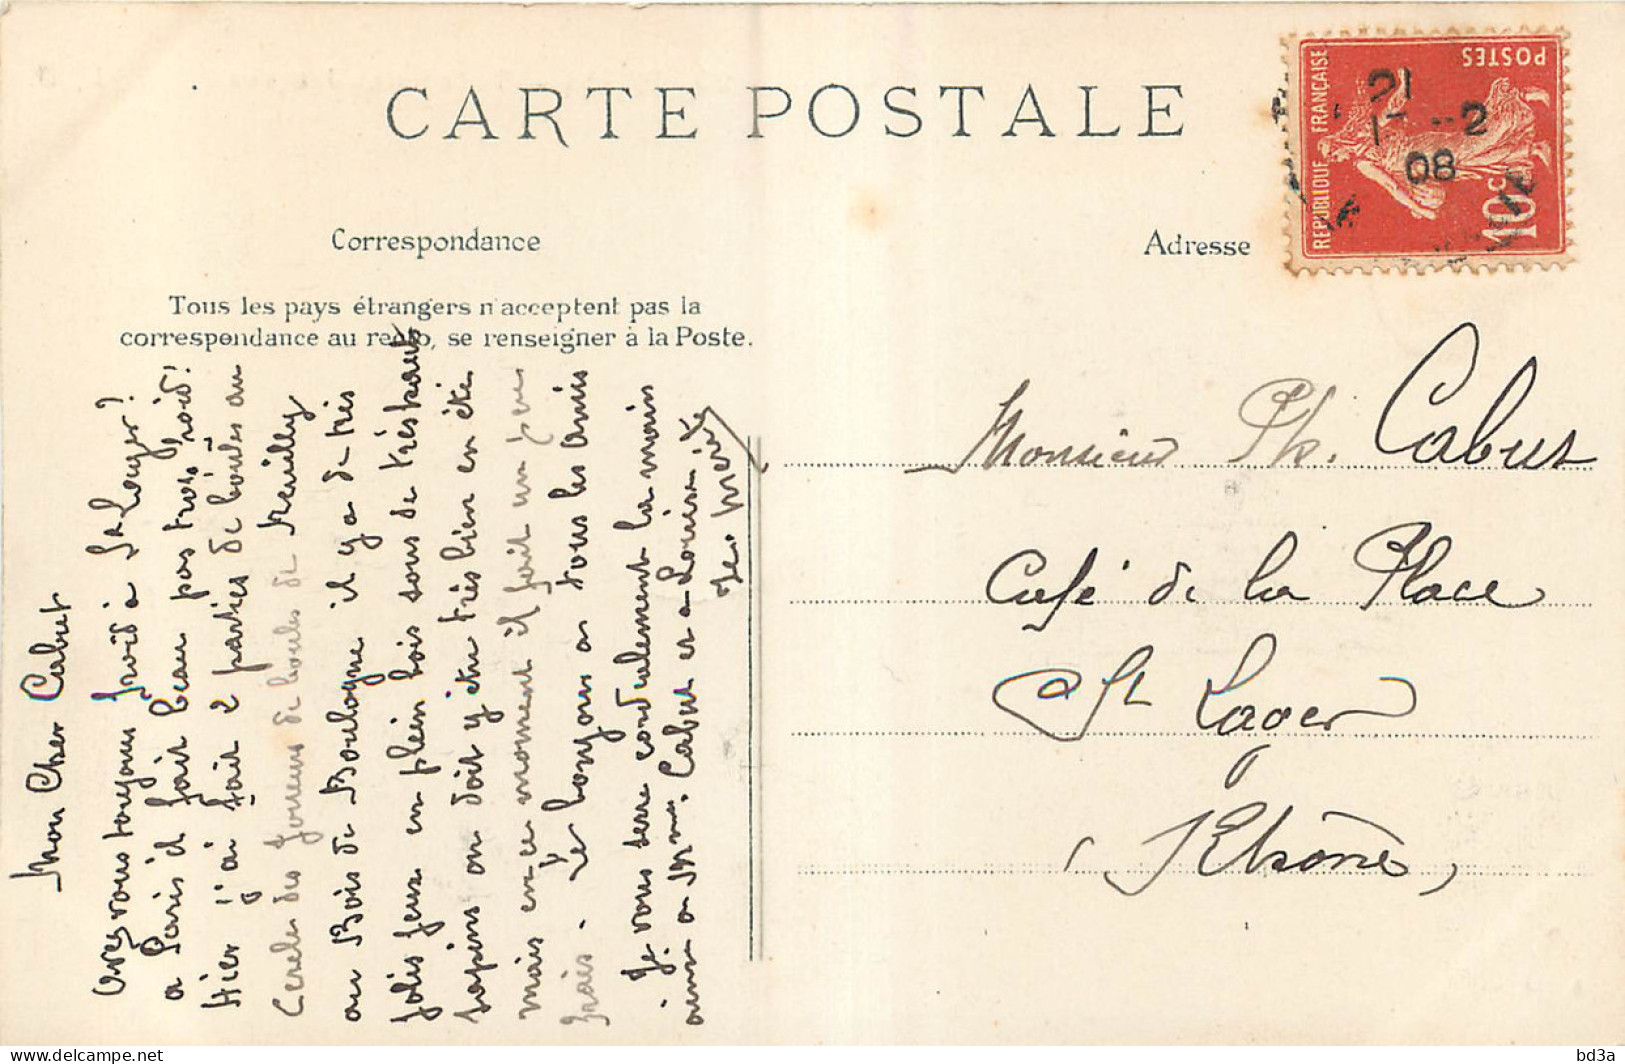 CARTE POSTALE
Correspondance
Tous les pays étrangers n'acceptent pas la
correspondance au recto, se renseigner à la Poste.
Adresse
REPUBLIQUE FRANÇAISE
POSTES
10c
21
-2
08
Monsieur Ph. Cabut
Café de la Place
St Lager
(Rhône)
Mon Cher Cabut
avez vous toujours froid à St Lager?
a Paris il fait beau pas trop froid!
Hier j'ai fait 2 parties de boules au
Cercle des Joueurs de boules de Neuilly
au Bois de Boulogne il y a de très
jolis jeux en plein bois sous de très hauts
sapins on doit y être très bien en été
mais en ce moment il fait un peu
frais. le bonjour a tous les amis
Je vous serre cordialement la main
ainsi qu'a Mme Cabut et a Louise
delcampe.net
bd3a